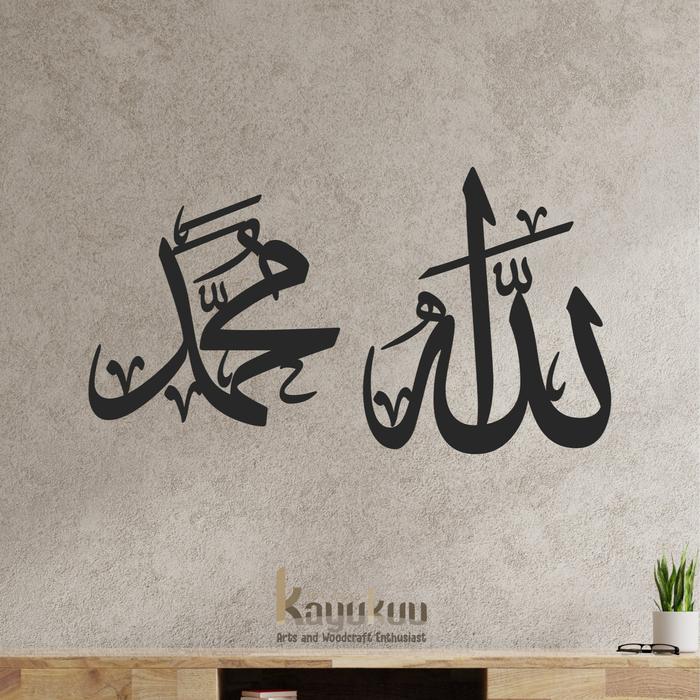 الله محمد
Kayukuu
Arts and Woodcraft Enthusiast